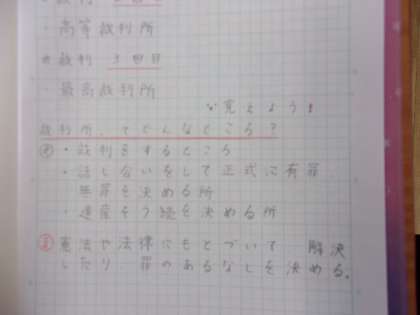 ・高等裁判所
裁判 3回目
・最高裁判所
覚えよう!
裁判所、てどんなところ?
・裁判をするところ
・話し合いをして正式に有罪、
無罪を決める所
・遺産そう続を決める所
憲法や法律にもとづいて 解決
したり 罪のあるなしを決める。